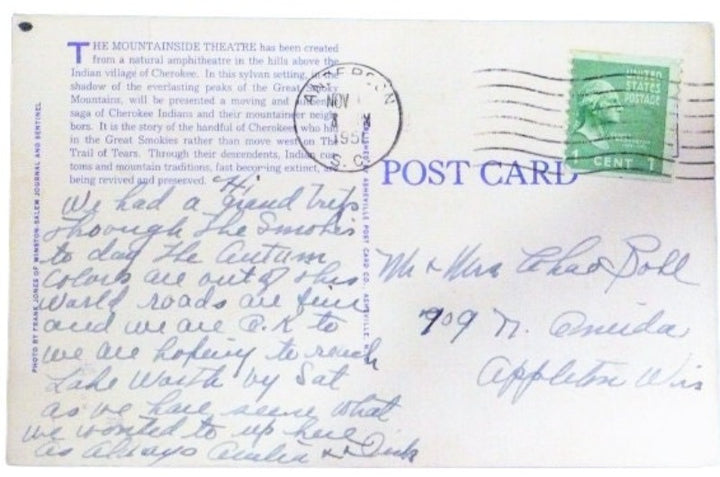 THE MOUNTAINSIDE THEATRE has been created
from a natural amphitheatre in the hills above the
Indian village of Cherokee. In this sylvan setting, in the
shadow of the everlasting peaks of the Great Smoky
Mountains, will be presented a moving and
saga of Cherokee Indians and their mountaineer neigh-
bors. It is the story of the handful of Cherokees who hid
in the Great Smokies rather than move west on The
Trail of Tears. Through their descendents, Indian cus-
toms and mountain traditions, fast becoming extinct, are
being revived and preserved.
PHOTO BY FRANK JONES OF WINSTON-SALEM JOURNAL AND SENTINEL
ASHEVILLE POST CARD CO., ASHEVILLE, N.
ANDERSON
NOV
S. C.
UNITED
STATES
POSTAGE
1 CENT 1
POST CARD
Hi
We had a grand trip
through the Smokies
to day the Autum
colors are out of this
world roads are fine
and we are O.K to
we are hoping to reach
Lake Worth by Sat
as we have seen what
we wanted to up here
as always Amelia & Dick
Mr & Mrs Chas
909 N. Oneida
Appleton Wis